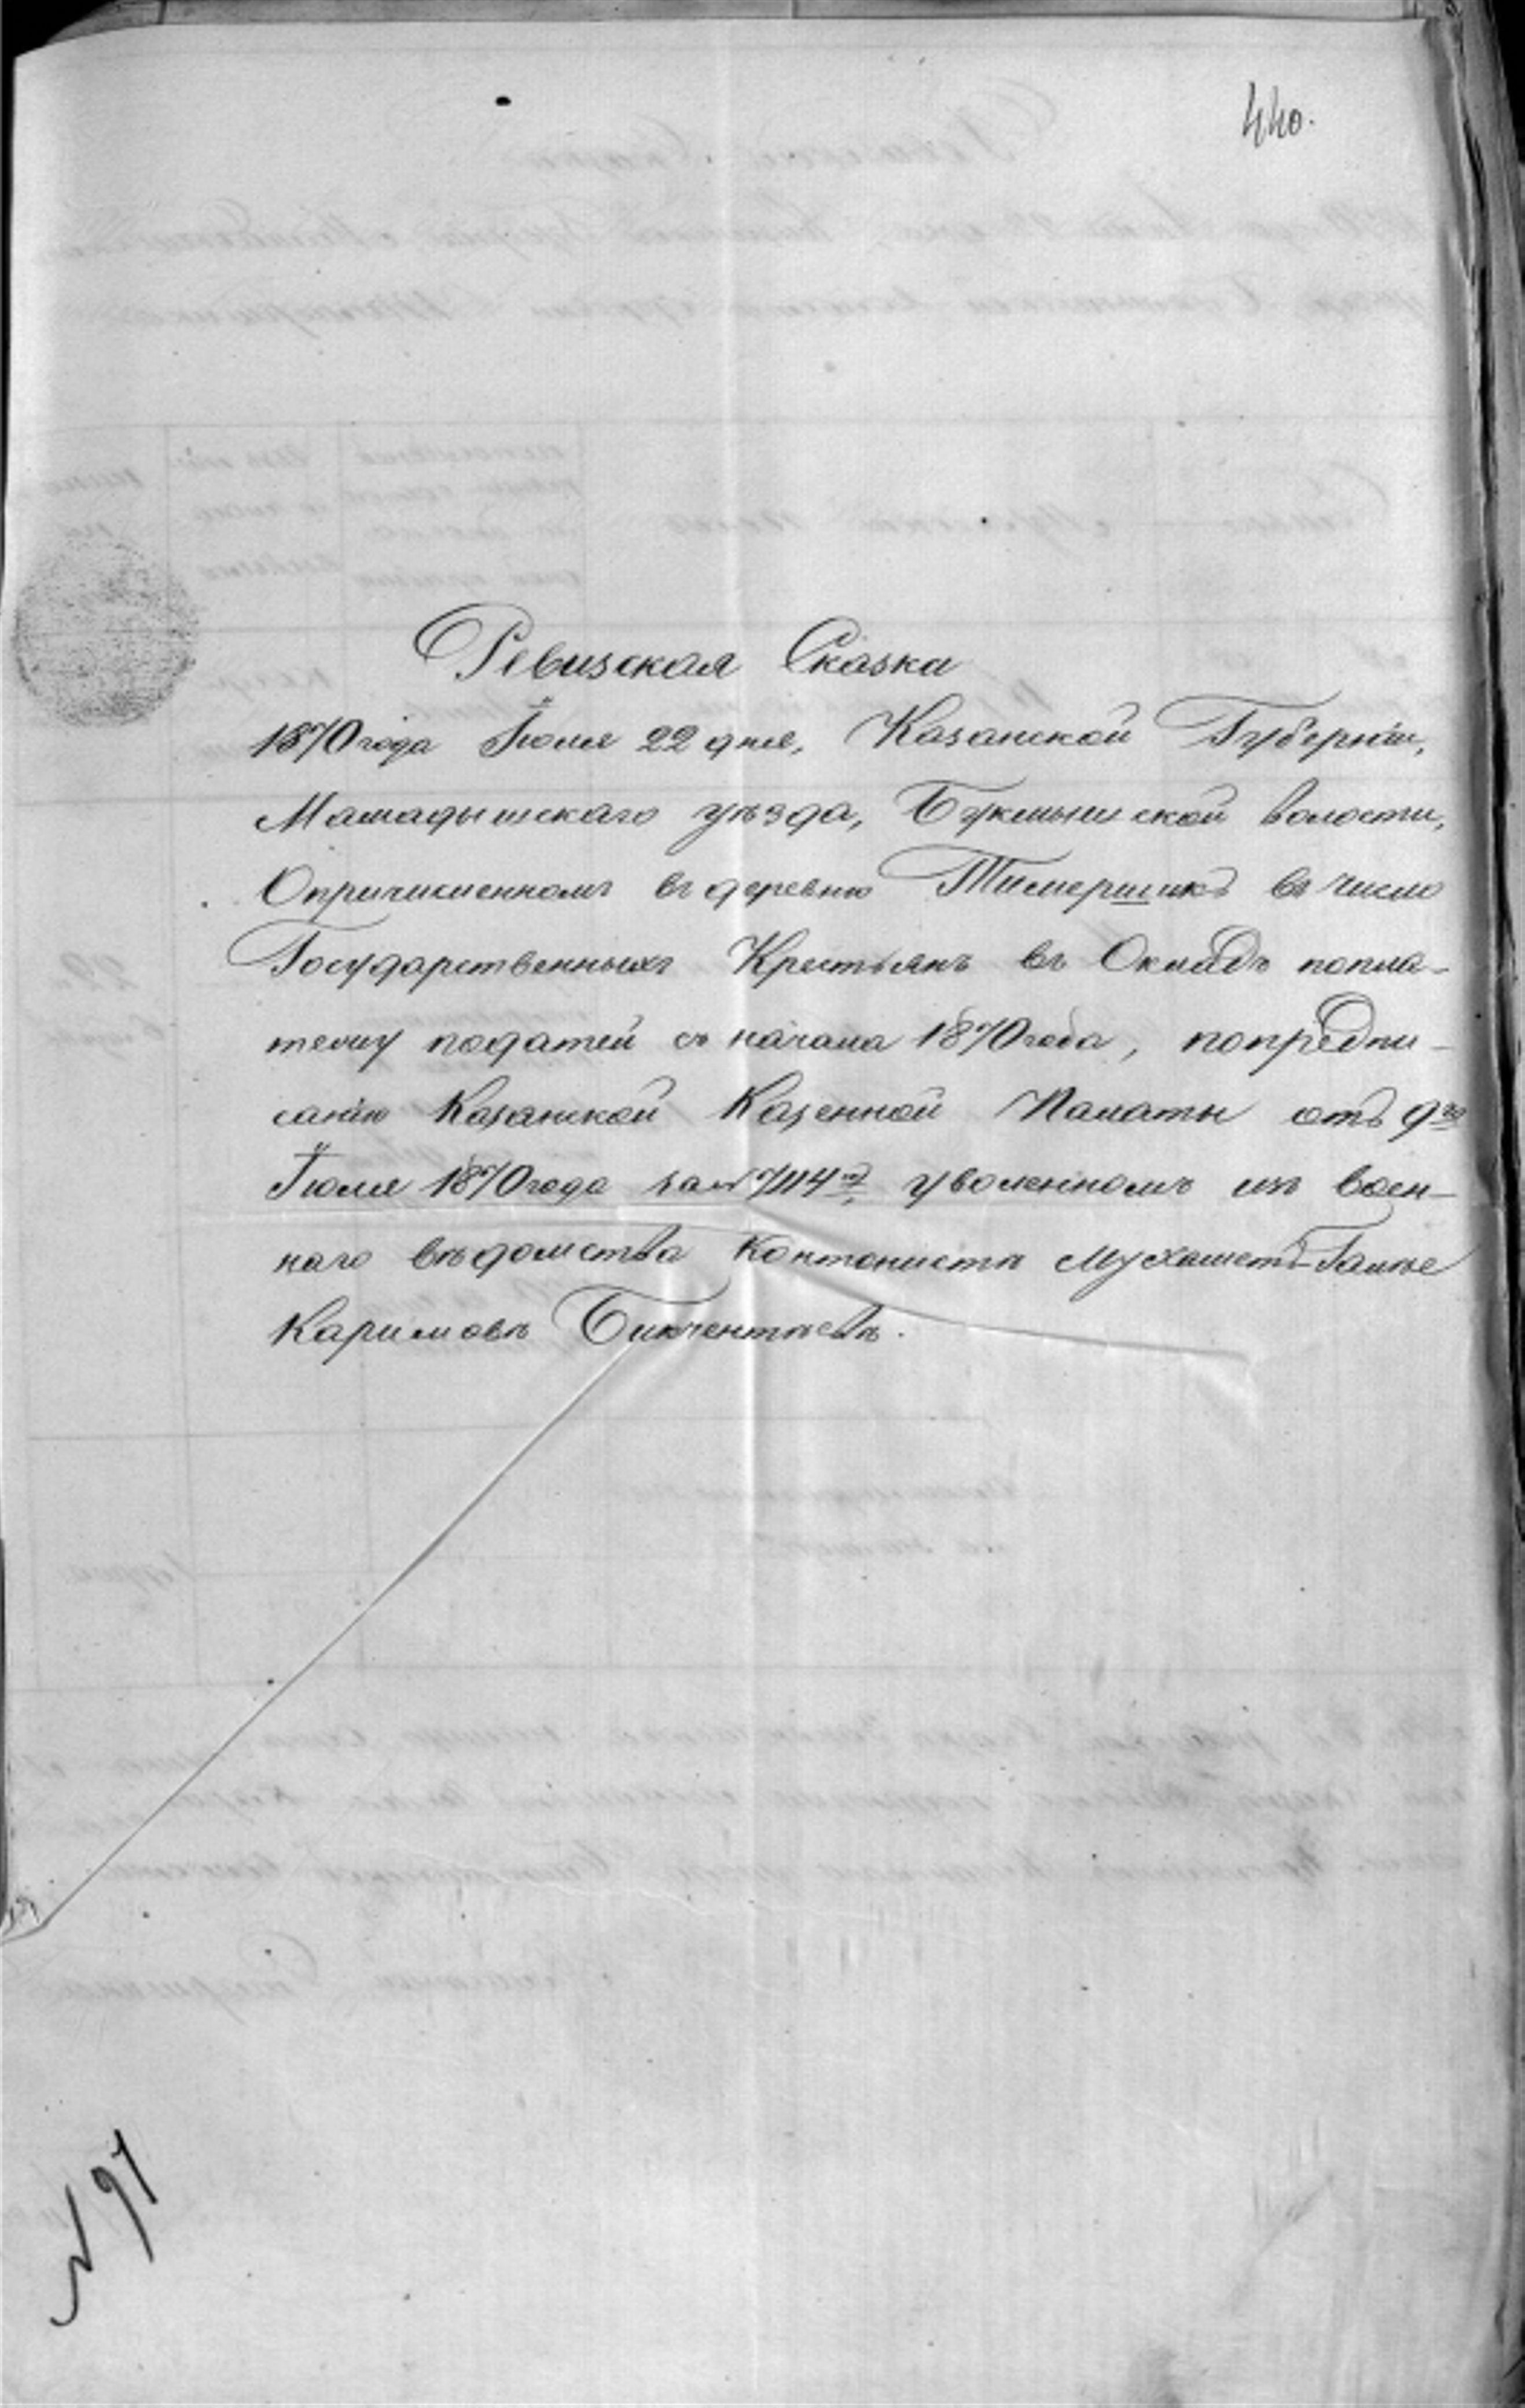 440.
Ревизская Сказка
1870 года Іюля 22 дня, Казанской Губерніи,
Мамадышскаго уѣзда, Букмышской волости,
Опричисленномъ въ деревню Тимершикъ въ число
Государственныхъ Крестьянъ въ Окладъ попла-
тежу податей съ начала 1870 года, попредпи-
санію Казанской Казенной Палаты отъ 9го
Іюля 1870 года за № 7114м уволенномъ изъ воен-
наго вѣдомства Контониста Мухаметъ-
Каримовѣ Бикчентаевѣ.
N 97